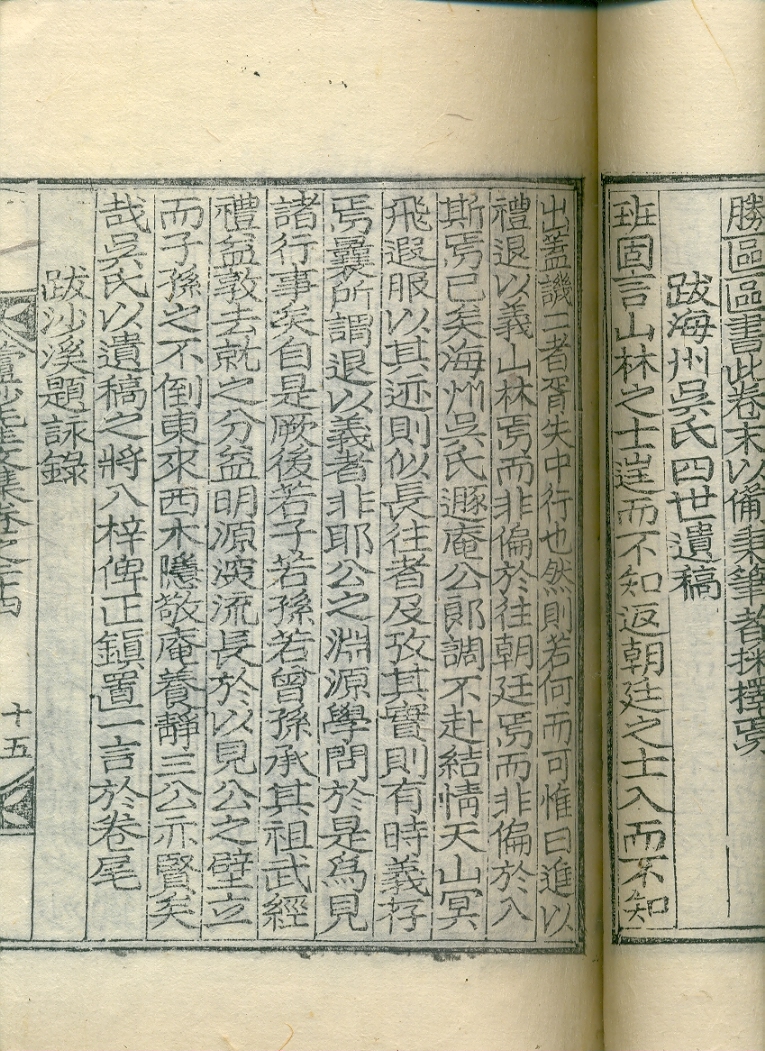 勝區區書此卷末以備秉筆者採擇焉
跋海州吳氏四世遺稿
班固言山林之士逞而不知返朝廷之士入而不知
出蓋譏二者胥失中行也然則若何而可惟曰進以
禮退以義山林焉而非偏於往朝廷焉而非偏於入
斯焉已矣海州吳氏遯庵公郞調不赴結情天山冥
飛遐服以其迹則似長往者及攷其實則有時義存
焉曩所謂退以義者非耶公之淵源學問於是爲見
諸行事矣自是厥後若子若孫若曾孫承其祖武經
禮益敦去就之分益明源深流長於以見公之壁立
而子孫之不倒東來西木隱敬庵養靜三公亦賢矣
哉吳氏以遺稿之將入梓俾正鎭置一言於卷尾
跋沙溪題詠錄
先生文集卷之十四
十五